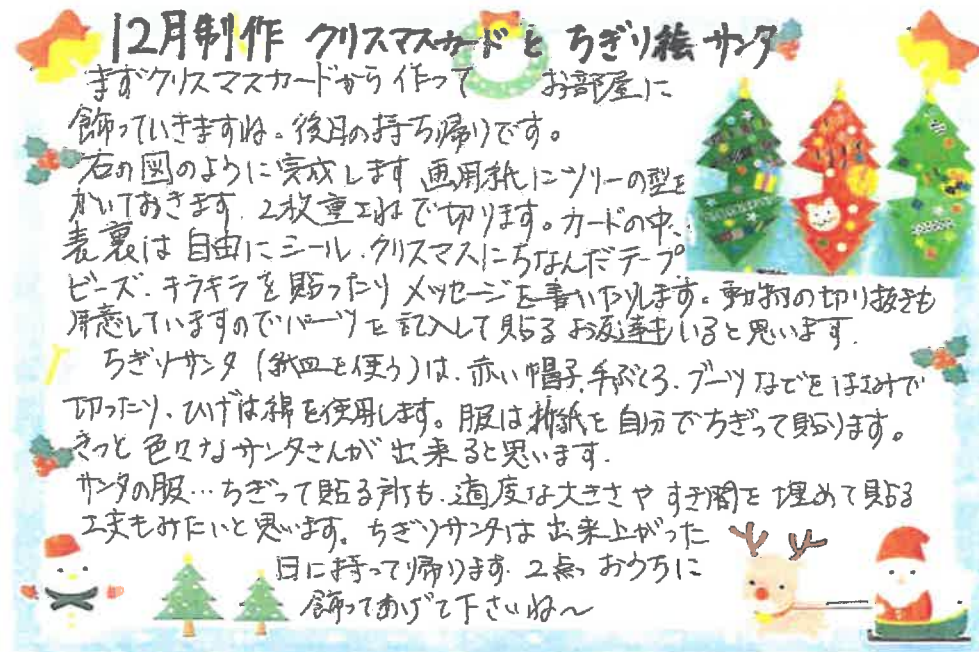 12月制作 クリスマスカードと ちぎり絵サンタ
まずクリスマスカードから作って お部屋に
飾っていきますね。後日の持ち帰りです。
右の図のように完成します 画用紙にツリーの型を
かいておきます。2枚重ねで切ります。カードの中、
表裏は自由にシール、クリスマスにちなんだテープ
ビーズ、キラキラを貼ったりメッセージを書いたりします。動物の切り抜きも
用意していますのでパーツを記入して貼るお友達もいると思います。
ちぎりサンタ(紙皿を使う)は、赤い帽子、手ぶくろ、ブーツなどをはさみで
切ったり、ひげは綿を使用します。服は折紙を自分でちぎって貼ります。
きっと色々なサンタさんが出来ると思います。
サンタの服…ちぎって貼る所も、適度な大きさやすき間を埋めて貼る
工夫もみたいと思います。ちぎりサンタは出来上がった
日に持って帰ります。2点っおうちに
飾ってあげて下さいね〜